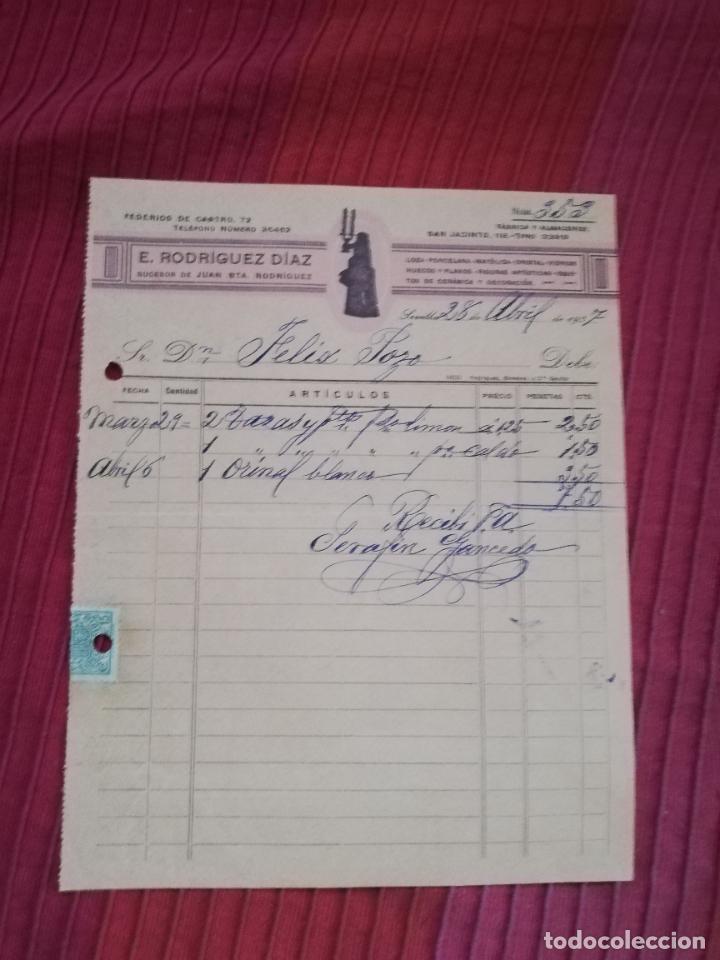 FEDERICO DE CASTRO, 72
TELÉFONO NÚMERO 26462
E. RODRÍGUEZ DÍAZ
SUCESOR DE JUAN BTA. RODRÍGUEZ
Núm. 353
FÁBRICA Y ALMACENES:
SAN JACINTO,
LOZA - PORCELANA - MAYÓLICA - CRISTAL - VIDRIOS
HUECOS Y PLANOS - FIGURAS ARTÍSTICAS - OBJE-
TOS DE CERÁMICA Y DECORACIÓN.
Sevilla 28 de Abril de 1937
Sr. Dn. Felix Pozo Debe
FECHA Cantidad ARTÍCULOS PRECIO PESETAS CTS.
Marzo 29 = 2 Tazas y pto. 1'25 2,50
1 " " " " " caldo 1,50
Abril 6 1 Orinal blanco 3,50
7,50
Recibi P.A.
Serafin Gancedo
todocoleccion